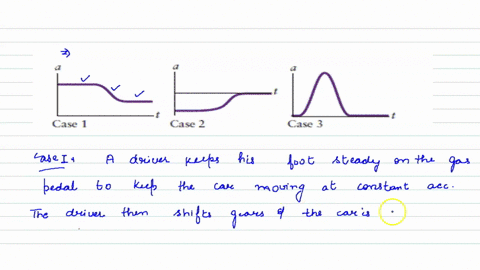 ⇒)
a a a
t t t
Case 1 Case 2 Case 3
Case I, A driver keeps his foot steady on the gas
pedal to keep the car moving at constant acc.
The driver then shifts gears & the car is